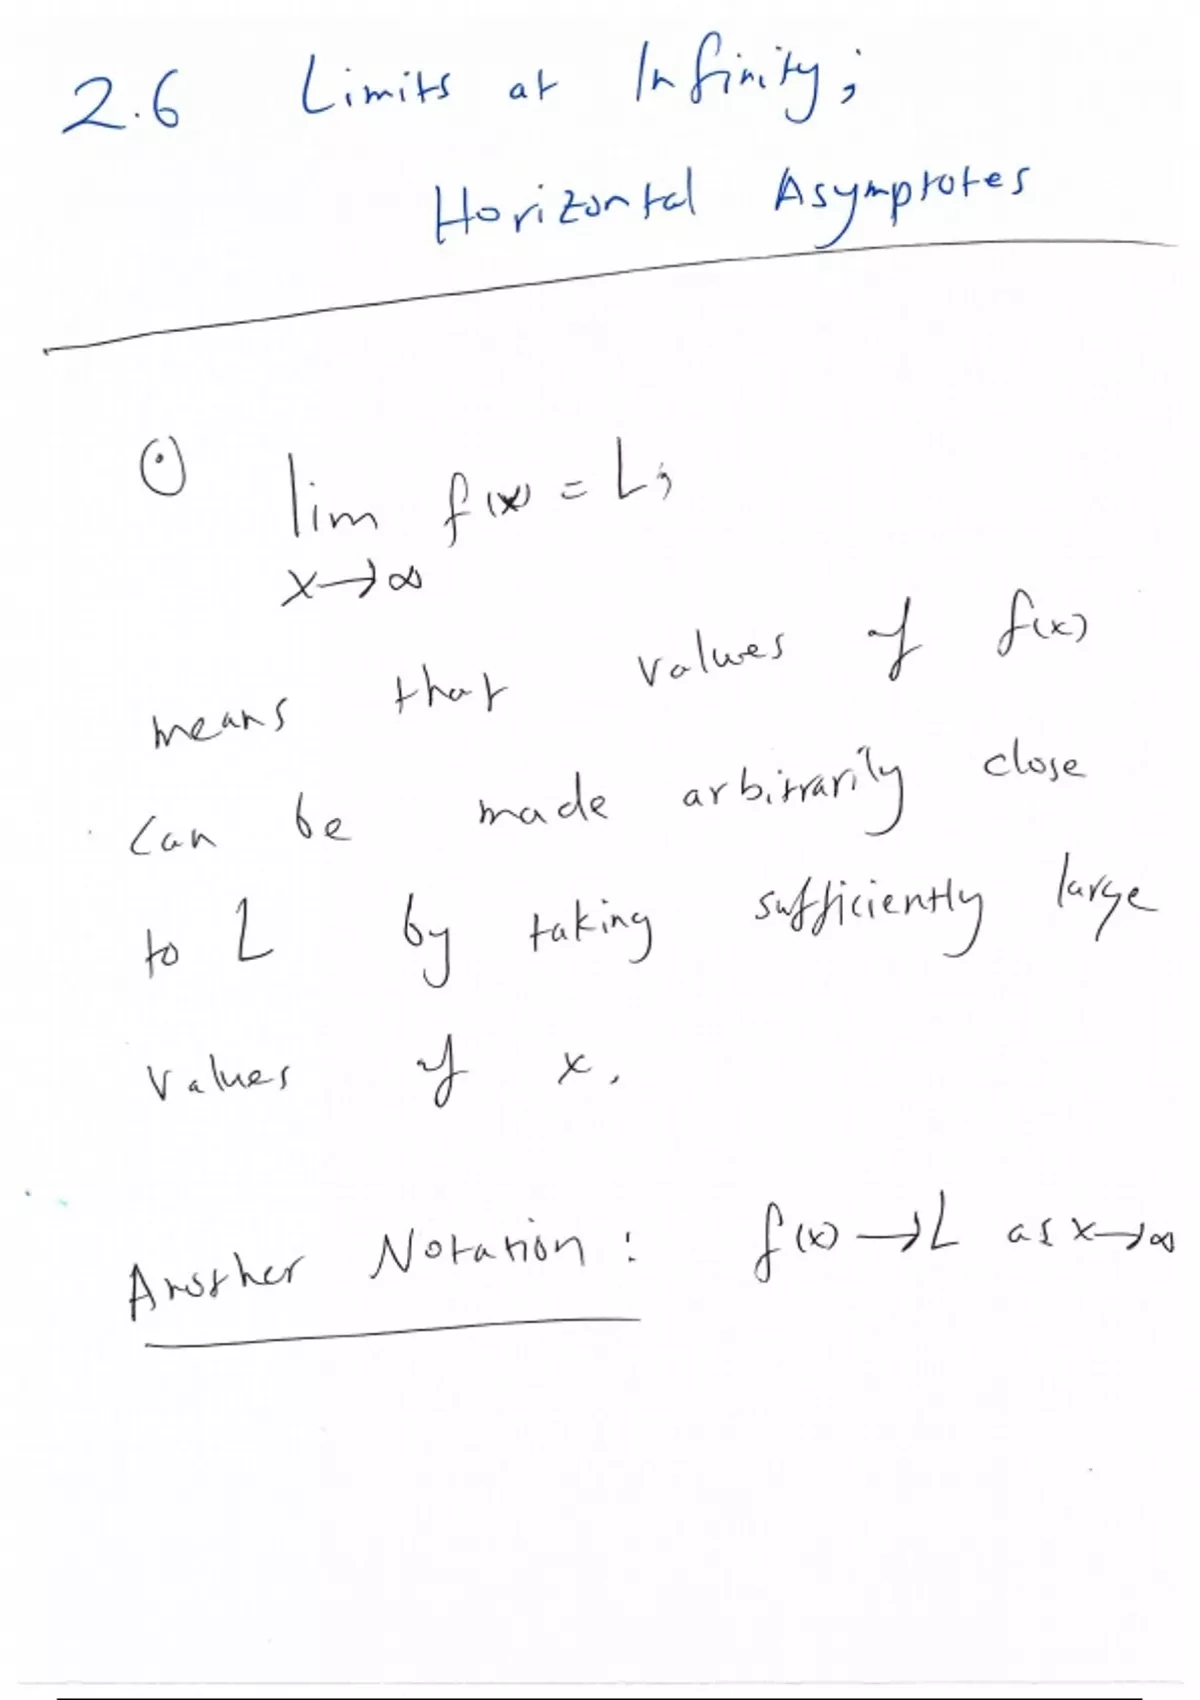 2.6 Limits at Infinity;
Horizontal Asymptotes
⊙ lim f(x) = L,
x→∞
means that values of f(x)
can be made arbitrarily close
to L by taking sufficiently large
values of x.
Another Notation: f(x)→L as x→∞